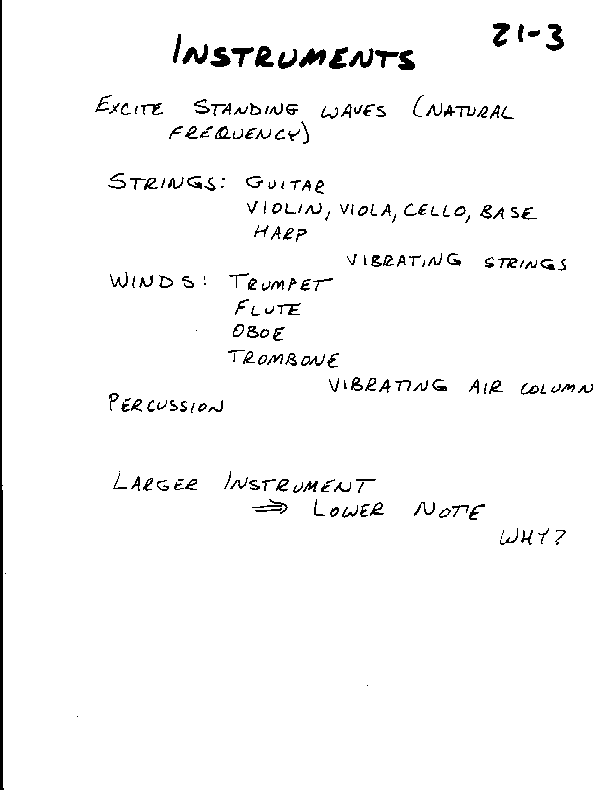 21-3
INSTRUMENTS
EXCITE STANDING WAVES (NATURAL
FREQUENCY)
STRINGS: GUITAR
VIOLIN, VIOLA, CELLO, BASE
HARP
VIBRATING STRINGS
WINDS: TRUMPET
FLUTE
OBOE
TROMBONE
VIBRATING AIR COLUMN
PERCUSSION
LARGER INSTRUMENT
⇒ LOWER NOTE
WHY?